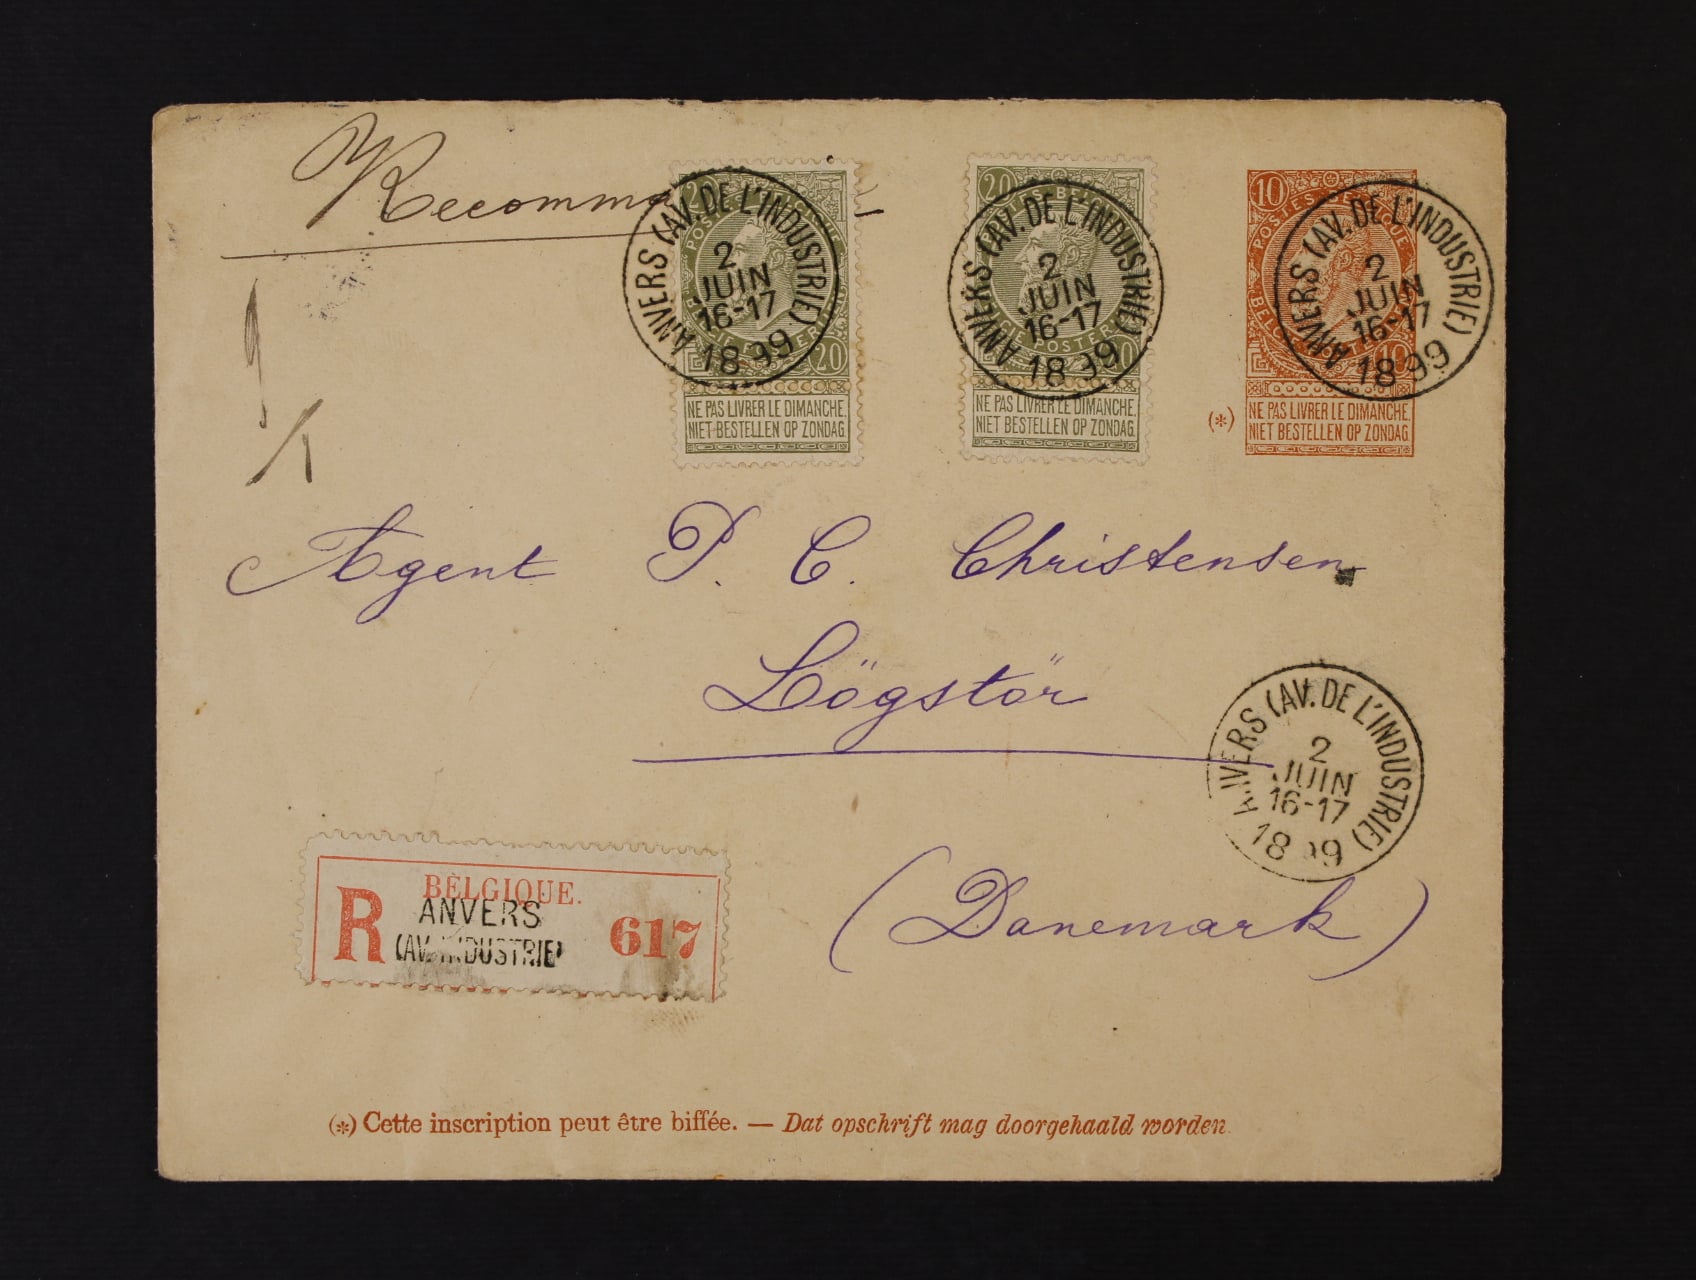 Recomma
20 20
POSTES BELGIQUE
NE PAS LIVRER LE DIMANCHE.
NIET BESTELLEN OP ZONDAG
ANVERS (AV. DE L'INDUSTRIE)
2
JUIN
16-17
1899
20
NE PAS LIVRER LE DIMANCHE.
NIET BESTELLEN OP ZONDAG
ANVERS (AV. DE L'INDUSTRIE)
2
JUIN
16-17
1899
10 10
POSTES BELGIQUE
(*) NE PAS LIVRER LE DIMANCHE.
NIET BESTELLEN OP ZONDAG.
ANVERS (AV. DE L'INDUSTRIE)
2
JUIN
16-17
1899
Agent P. C. Christensen
Lögstör
(Danemark)
ANVERS (AV. DE L'INDUSTRIE)
2
JUIN
16-17
1899
BELGIQUE.
R ANVERS 617
(AV. INDUSTRIE)
(*) Cette inscription peut être biffée. — Dat opschrift mag doorgehaald worden.